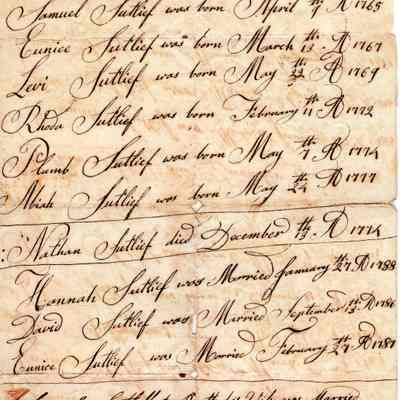 Samuel Sutlief was born April 7th AD 1765
Eunice Sutlief was born March 13th AD 1767
Levi Sutlief was born May 22 AD 1769
Rhoda Sutlief was born February 11th AD 1772
Plumb Sutlief was born May 7th AD 1774
Abiah Sutlief was born May 24th AD 1777
Nathan Sutlief died December 13th AD 1774
Hannah Sutlief was Married January 27th AD 1788
David Sutlief was Married September AD 1786
Eunice Sutlief was Married February 27th AD 1787
was Married